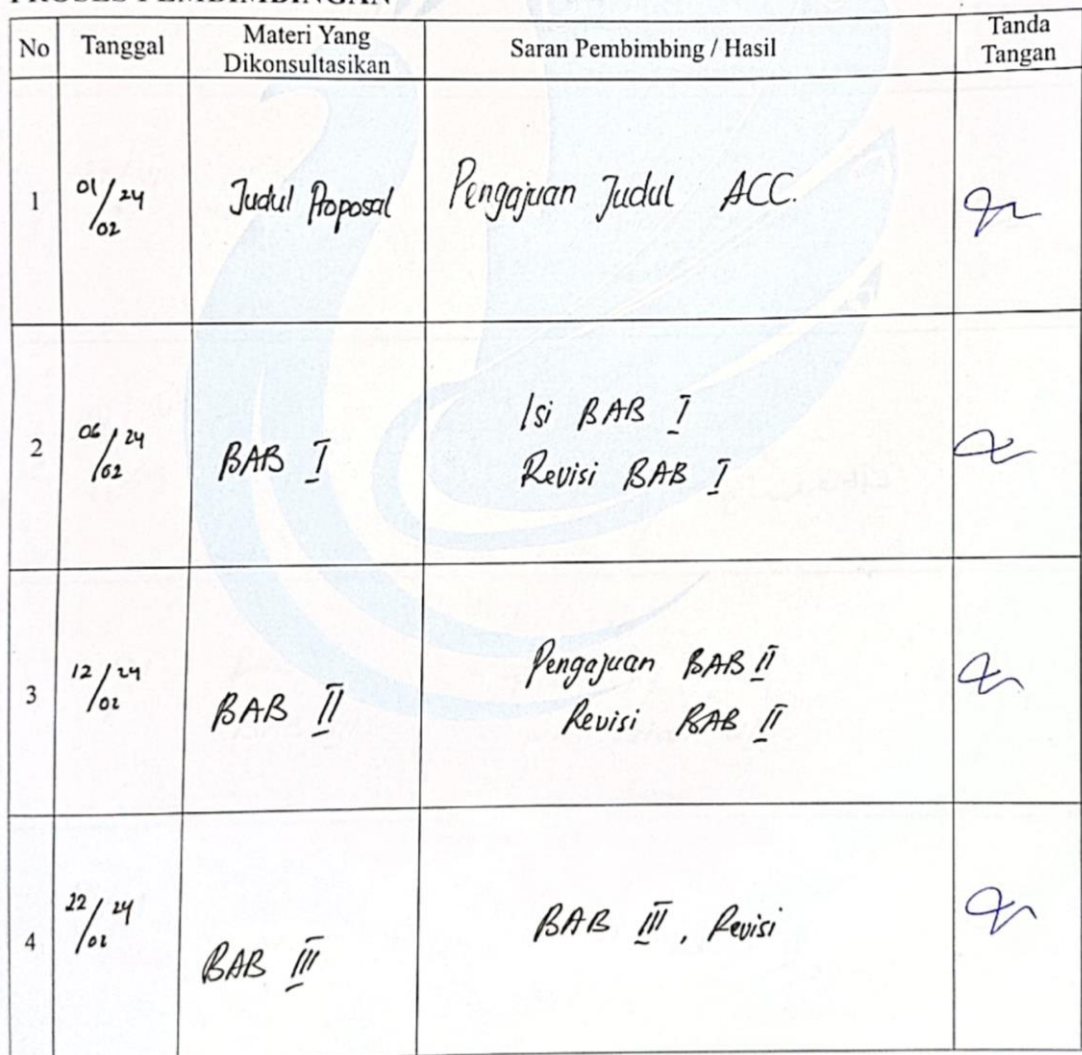 PROSES PEMBIMBINGAN
No Tanggal Materi Yang Dikonsultasikan Saran Pembimbing / Hasil Tanda Tangan
1 01/02 24 Judul Proposal Pengajuan Judul ACC.
2 06/02 24 BAB I Isi BAB I
Revisi BAB I
3 12/02 24 BAB II Pengajuan BAB II
Revisi BAB II
4 22/02 24 BAB III BAB III, Revisi